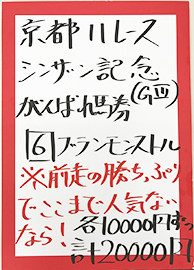 京都11レース
シンザン記念
がんばれ馬券(GⅢ)
6 フランモンストル
※前走の勝ちっぷり
でここまで人気ない
なら! 各10000円ずつ
計20000円